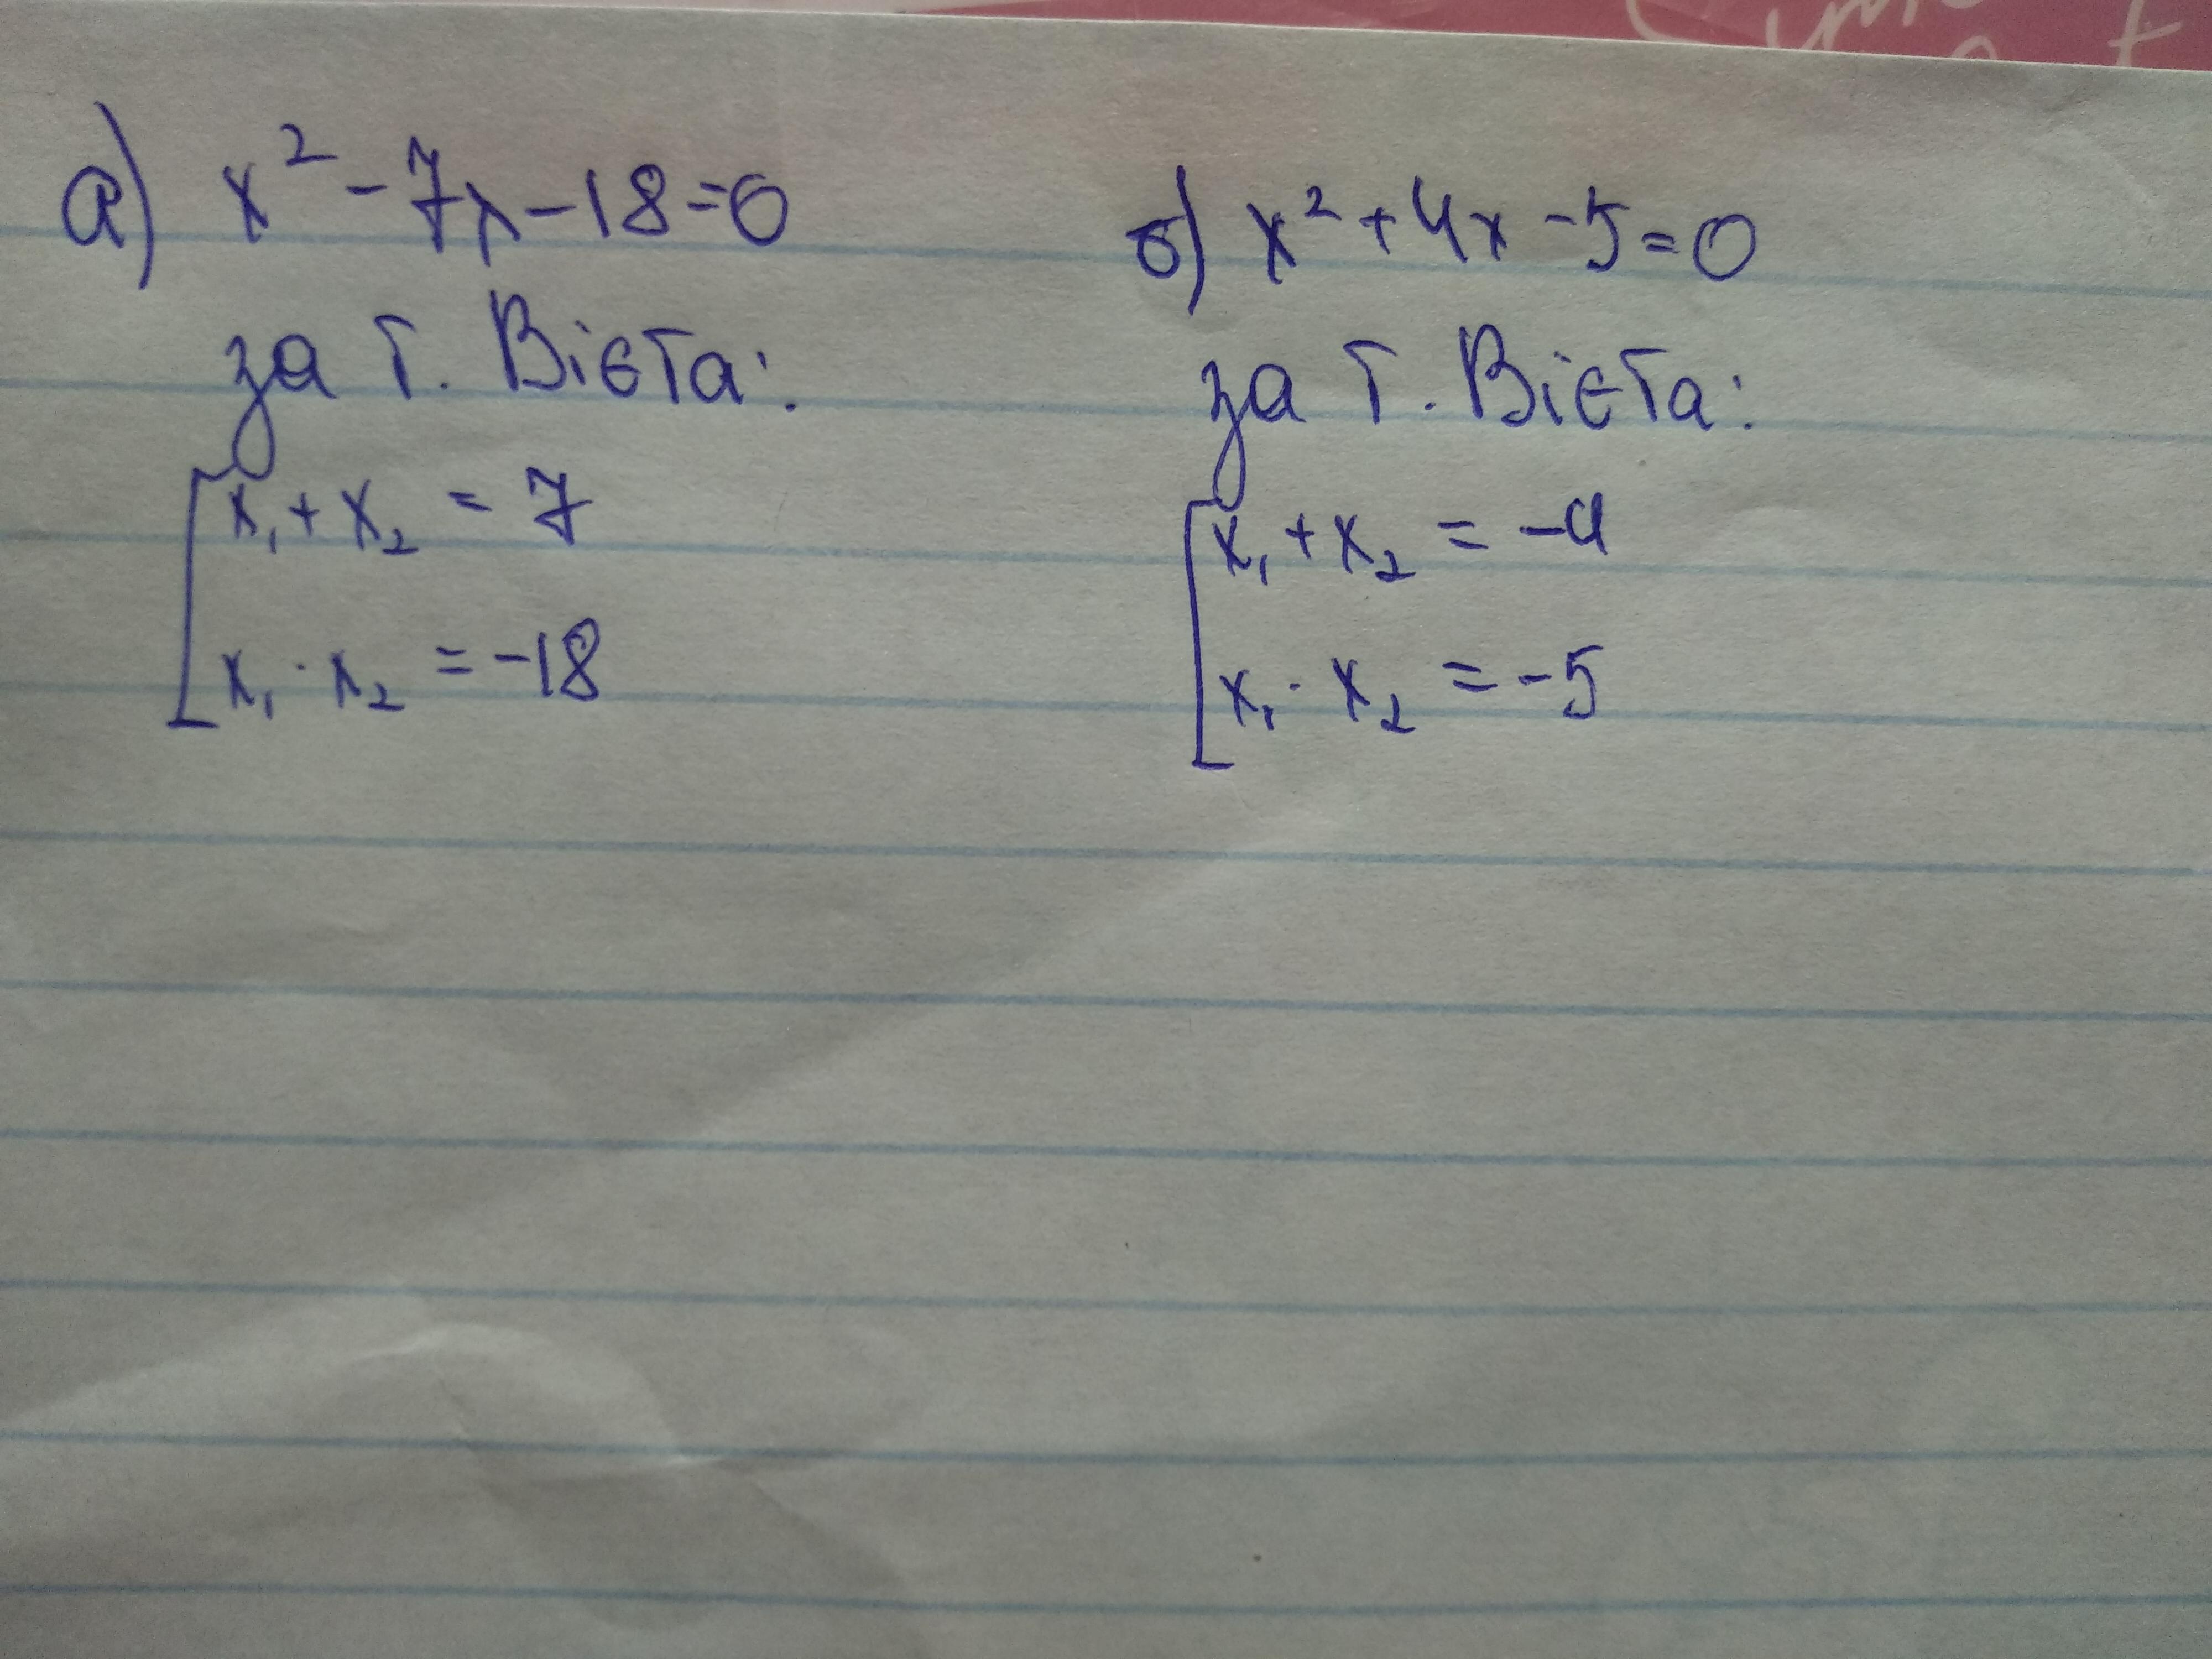 а) x² - 7x - 18 = 0
за т. Вієта:
x₁ + x₂ = 7
x₁ · x₂ = -18
б) x² + 4x - 5 = 0
за т. Вієта:
x₁ + x₂ = -4
x₁ · x₂ = -5